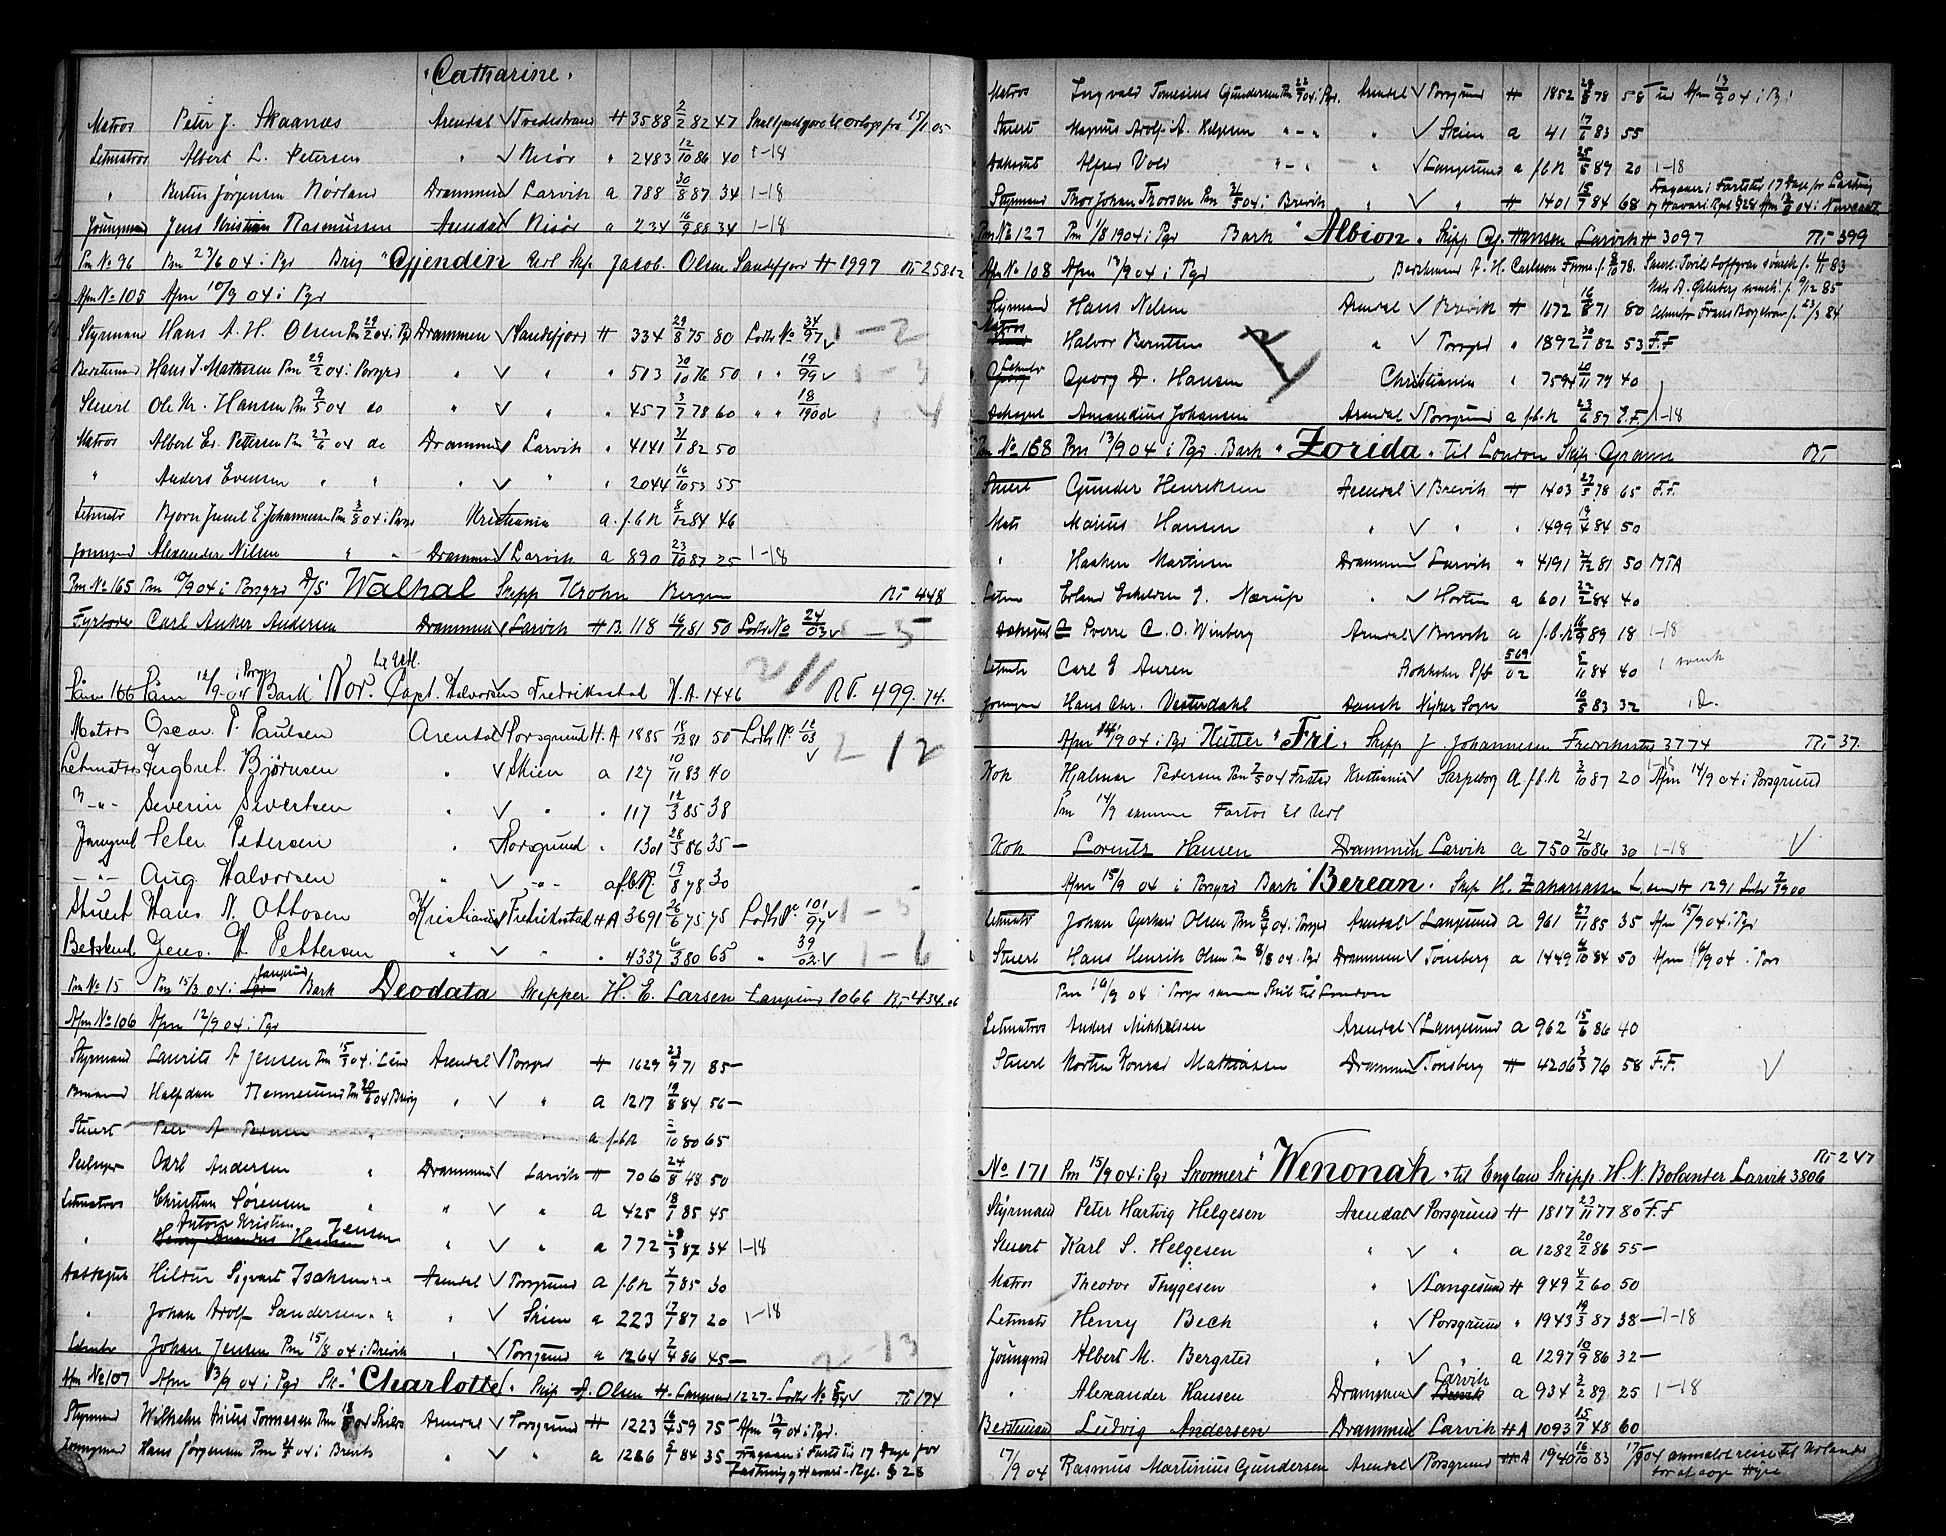 "Catharine"
Matros Peter J. Skaanæs Arendal Tvedestrand H 3588 2/2 82 47
Letmatros Albert L. Petersen " Risør " 2483 12/10 86 40 1-18
" Bertin Jørgensen Nørland Drammen Larvik a 788 30/8 87 34 1-18
Joungmand Jens Kristian Rasmussen Arendal Risør a 234 16/9 88 34 1-18
Pm No 96 Pm 23/6 04 i Pgr Brig "Gjendin" Skp. Jacob Olsen Sandefjord H 1997
Afm No 105 Afm 10/9 04 i Pgr
Styrmand Hans A. H. Olsen Pm 29/2 04 i Pgr Drammen Sandefjord H 334 29/8 75 80 Lods No 34/97 1-2
Bestmand Hans J. Mathisen Pm 29/2 04 i Porsgr " " " 513 30/10 76 50 " " 19/99 1-3
Stuert Ole Kr. Hansen Pm 9/5 04 do " " " 457 3/7 78 60 " " 18/1900 1-4
Matros Albert Ed. Pettersen Pm 23/6 04 do Drammen Larvik " 4141 21/1 82 50
" Anders Evensen " " " " " 2044 16/10 53 55
Letmatr Bjorn Juul E. Johannesen Pm 3/8 04 i Porsgr Kristiania a. f.b.R 8/12 84 46
Joungmd Alexander Nilsen " " Drammen Larvik a 890 23/10 87 25 1-18
Pm No 165 Pm 10/9 04 i Porsgrd D/S Walhal Skipp Krohn Bergen RT 448
Fyrbøder Carl Anker Andersen Drammen Larvik H B. 118 16/11 81 50 Lods No 24/03 1-5
Paam 166 Paam 12/9-04 i Porsgr Bark "Nor" Capt. Halvorsen Fredrikstad H.A. 1446 2/11 RT. 499.74.
Matros Oscar P. Paulsen Arendal Porsgrund H.A 1885 18/12 81 50 Lods No 12/03 2-12
Letmatros Ingbret Bjørnsen " Skien a 127 10/11 83 40
"-"- Severin Sivertsen " " " 117 12/3 85 38
Jungmd Peter Petersen " Porsgrund " 1301 28/5 86 35—
-"- Aug. Halvorsen " -"- a f.b.R. 19/8 78 30
Stuert Hans N. Ottosen Kristiania Fredrikstad H A 3691 26/6 75 75 Lods No 101/97 1-5
Bestmd Jens. H. Pettersen " " " 4337 6/3 80 65 " 39/02 1-6
Pm No 15 Pm 15/3 04 i Langesund Bark Deodata Skipper H. E. Larsen Langesund 1066 RT 434.06
Afm No 106 Afm 12/9 04 i Pgr
Styrmand Laurits A Jensen Pm 15/3 04 i Lsund Arendal Porsgr H 1629 23/9 71 85—
Halfdan Pm 20/6 04 Brevig " " a 1217 19/8 84 56—
Stuert Peer A " " " a f.b.R 2/10 80 65
Seilmager Carl Andersen " Drammen Larvik H 706 24/8 48 50
Letmatros Christian Sørensen " " " a 425 18/1 85 45
" Anton Kristian Jensen " " a 772 28/3 87 34 1-18
Dæksgut Hildur Sigvart Isaksen " " Arendal Porsgrund a f.b.R 4/7 85 30
" Johan Adolf Sandersen " " " Skien a 223 17/7 87 20 1-18
Letmtr Johan Jensen Pm 15/8 04 i Brevik " Porsgrund a 1264 2/4 86 45— 2-13
Afm No 107 Afm 13/9 04 i Pgr Sk- "Charlotte". Skip A. Olsen H. Langesund 1227 Lods No RT 174
Styrmand Wilhelm Anius Tommesen Pm 18/8 04 Skien Arendal Porsgrund H 1223 16/4 59 75 Afm 13/9 04 i Pgr.
Joungmand Hans Jørgensen Pm 4/8 04 i Brevik " " a 1286 5/7 84 35 Fragaar i Fartstid 17 Dage for
Lastning og Havari-Regl. § 28
Matros Ingvald Tomesius Gundersen Pm 22/9 04 i Pgr. Arendal Porsgrund H 1852 29/8 78 58 Afm 13/9 04 i
Stuert Magnus Adolf A. Helgesen "-" " Skien a 41 17/6 83 55
Dæksgut Alfred Vold "-" " Langesund a f.b.R 25/5 89 20 1-18
Styrmand Thor Johan Thorsen Pm 31/5 04 i Brevik " " H 1401 15/7 84 68 Fragaar i Fartstid 17 Dage for Lastning
og Havari Rgl § 28 Afm 04 i Newcastle
Pm No 127 Pm 1/8 1904 i Pgr Bark "Albion" Skipp Hansen Larvik H 3097 RT 399
Afm No 108 Afm 13/9 04 i Pgr Bestmand A. H. Carlsson
Styrmand Hans Nilsen Arendal Brevik H 1172 16/8 71 80
Matros Halvor Berntsen " Porsgrd " 1892 30/1 82 53 F.F
Letmtr Georg D. Hansen Christiania " 7594 10/11 79 40
Dæksgut Amandus Johansen Arendal Porsgrund a f.b.R 23/6 87 F.F. 1-18
Pm No 168 Pm 13/9 04 i Pgr. Bark "Zorida" til London Skip. Gram RT
Stuert Gunder Henriksen Arendal Brevik H 1403 27/5 78 65 F.F.
Mats Marius Hansen " " " 1499 19/4 84 50
" Haaken Martinsen Drammen Larvik " 4191 2/12 81 50 MTA
Letm Erland Eskildsen J. Nærup " Horten a 601 22/2 84 40
Dæksgut Sverre C. O. Winberg Arendal Brevik a f.b.R 16/9 89 18 1-18
Letmtr Carl E Auren Stokholm 569/02 5/11 84 40 1 svensk
Joungm Hans Chr. Vesterdahl Dansk Nykær Sogn 10/5 83 32 1 D.
Afm 14/9 04 i Pgr Kutter "Fri" Skipp J Johannesen Fredrikstad 3774 RT 37.
Kok Hjalmar Pedersen Pm 2/5 04 Fr.stad Kristiania Sarpsborg a f.b.R 3/10 87 20 1-18 Afm 14/9 04 i Porsgrund
Pm 14/9 samme Fartøi til Udl
Kok Lorentz Hansen Drammen Larvik a 750 21/10 86 30 1-18
Afm 15/9 04 i Porsgrd Bark "Berean" Skip H. Zakariassen L.sund H 1291 Lods 2/1900
Letmatr Johan Gerhard Olsen Pm 8/7 04 i Porsgrd Arendal Langesund a 961 27/11 85 35 Afm 15/9 04 i Pgr
Stuert Hans Henrik Olsen Pm 8/8 04 i Pgr Drammen Tønsberg a 1449 4/10 84 50 Afm 16/9 04 i Pors
Pm 16/9 04 i Porsgr samme Skib til London
Letmatros Anders Mikkelsen Arendal Langesund a 962 15/6 86 40
Stuert Morten Konrad Mathiasen Drammen Tønsberg H 4206 3/3 76 58 F.F.
No 171 Pm 15/9 04 i Pgr Skonnert "Wenonah" til England Skipp. H. N. Bolander Larvik 3806 RT 247
Styrmand Peter Hartvig Helgesen Arendal Porsgrund H 1817 23/11 77 80 F.F
Stuert Karl S. Helgesen " " a 1282 20/2 86 55—
Matros Theodor Thygesen " Langesund H 949 4/2 60 50
Letmats Henry Beck " Porsgrund " 1943 19/3 87 38— 1-18
Joungmd Albert M. Bergsted " " a 1297 10/9 86 32—
" Alexander Hansen Drammen Larvik a 934 3/2 89 25 1-18
Bestmand Ludvig Andersen Drammen Larvik H A 1093 15/7 48 60
17/9 04 Rasmus Martinius Gundersen Arendal Porsgrund H A 1940 16/10 83 17/9 04 anmeldt reise til Udlandet
for at søge Hyre